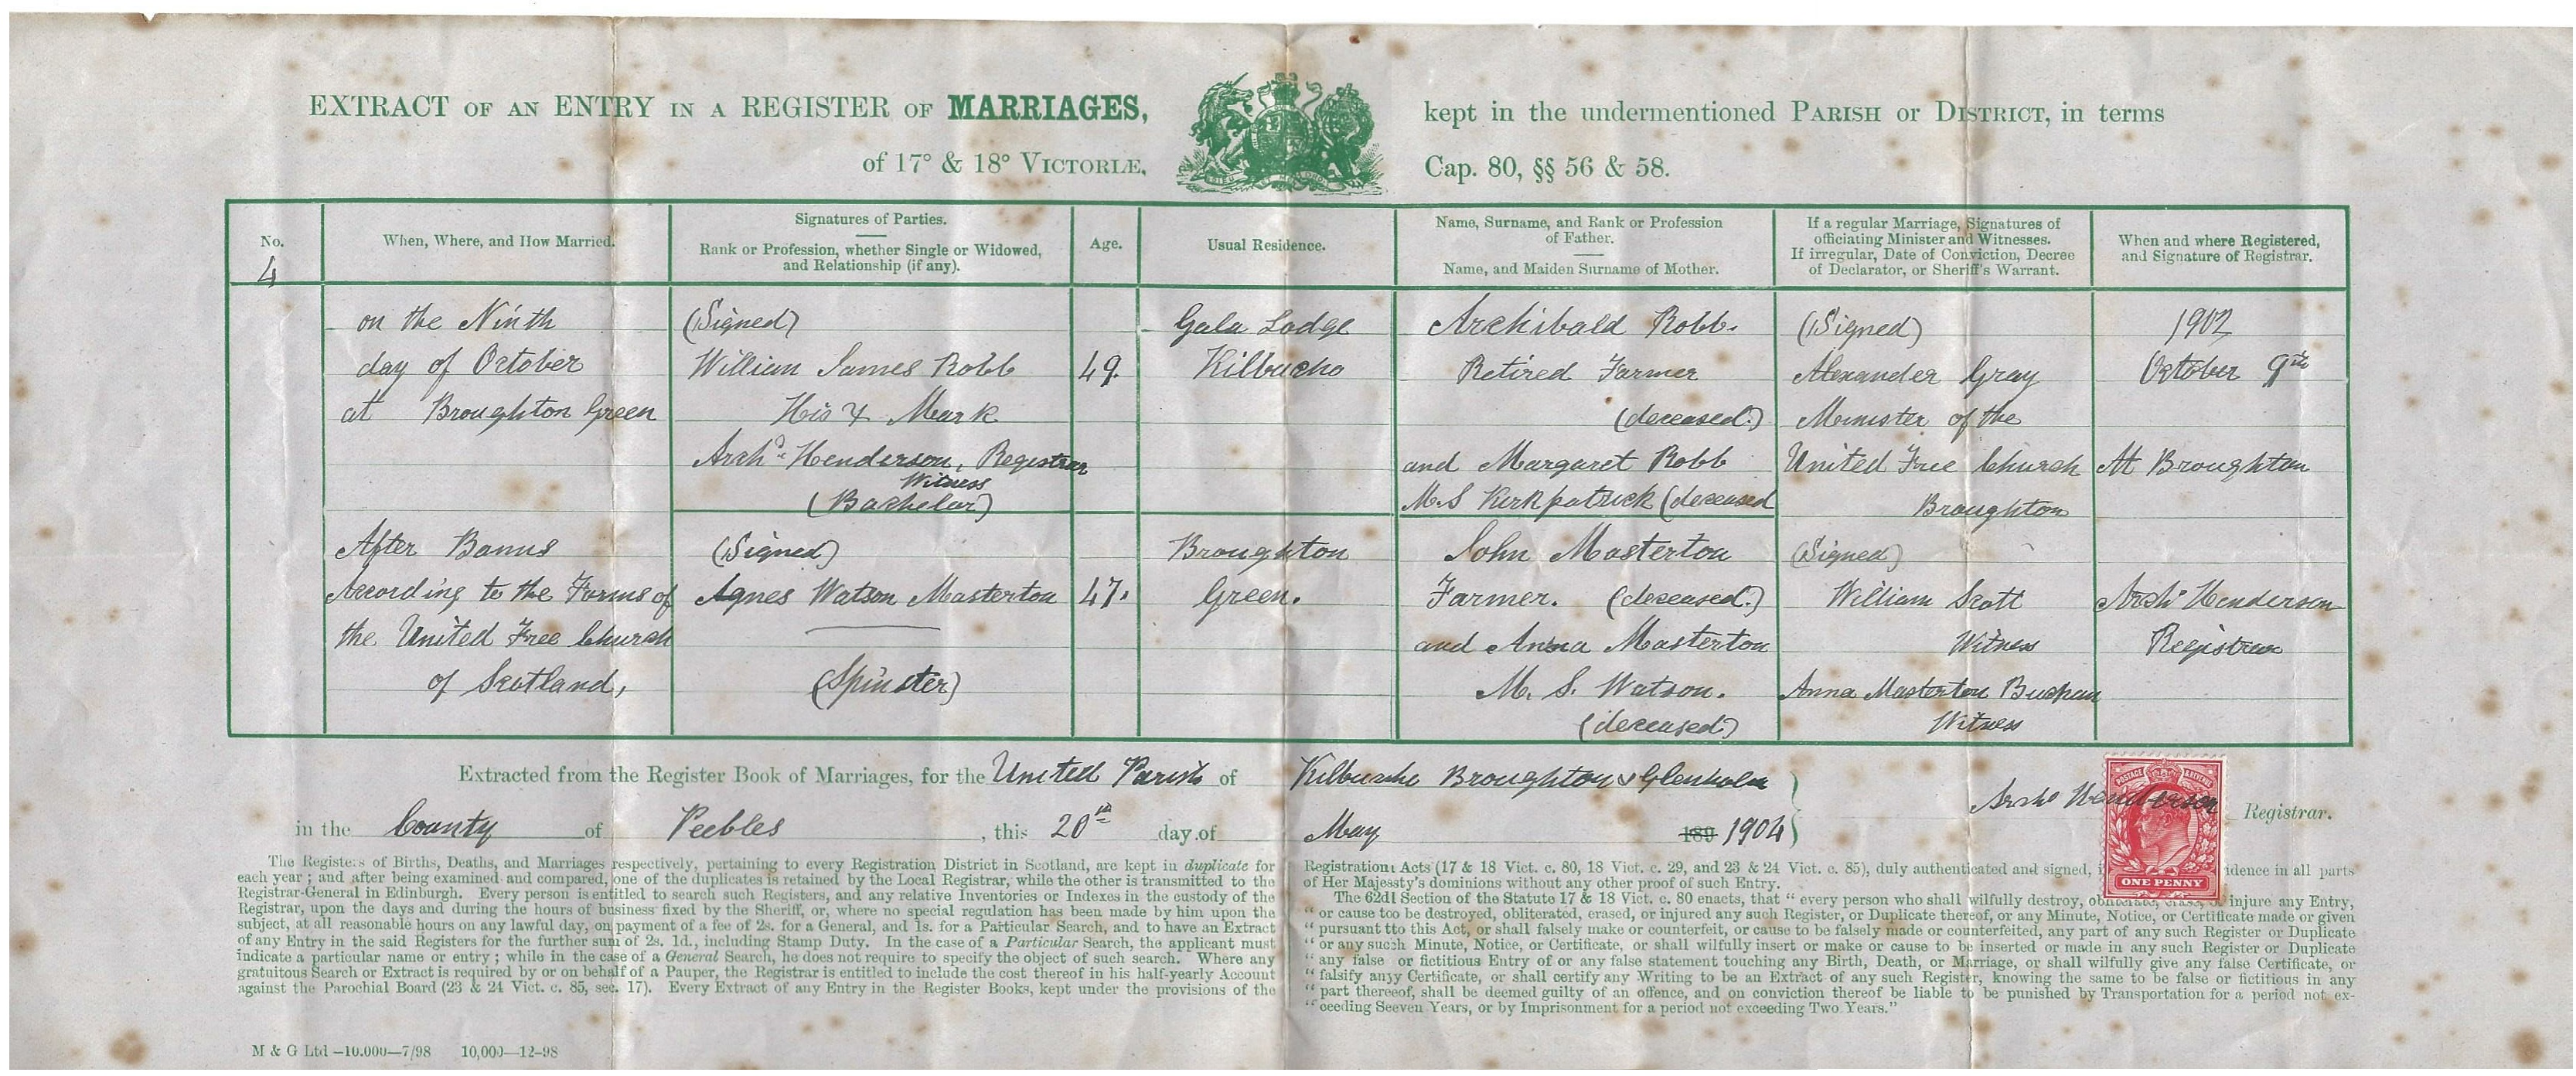 EXTRACT OF AN ENTRY IN A REGISTER OF MARRIAGES, kept in the undermentioned PARISH or DISTRICT, in terms
of 17° & 18° VICTORIÆ, Cap. 80, §§ 56 & 58.
No.
4
When, Where, and How Married.
Signatures of Parties.
Rank or Profession, whether Single or Widowed,
and Relationship (if any).
Age.
Usual Residence.
Name, Surname, and Rank or Profession
of Father.
Name, and Maiden Surname of Mother.
If a regular Marriage, Signatures of
officiating Minister and Witnesses.
If irregular, Date of Conviction, Decree
of Declarator, or Sheriff's Warrant.
When and where Registered,
and Signature of Registrar.
on the Ninth
day of October
at Broughton Green
After Banns
According to the Forms of
the United Free Church
of Scotland,
(Signed)
William James Robb
His X Mark
Archd. Henderson, Registrar
Witness
(Bachelor)
(Signed)
Agnes Watson Masterton
(Spinster)
49.
47.
Gala Lodge
Kilbucho
Broughton
Green.
Archibald Robb.
Retired Farmer
(deceased.)
and Margaret Robb
M.S Kirkpatrick (deceased
John Masterton
Farmer. (deceased.)
and Anna Masterton
M. S. Watson.
(deceased)
(Signed)
Alexander Gray
Minister of the
United Free Church
Broughton
(Signed)
William Scott
Witness
Anna Masterton Buchan
Witness
1902
October 9th
At Broughton
Archd Henderson
Registrar
Extracted from the Register Book of Marriages, for the United Parish of Kilbucho Broughton & Glenholm
in the County of Peebles, this 20th day of May 189 1904
Archd Henderson Registrar.
POSTAGE & REVENUE
ONE PENNY
The Registers of Births, Deaths, and Marriages respectively, pertaining to every Registration District in Scotland, are kept in duplicate for
each year; and after being examined and compared, one of the duplicates is retained by the Local Registrar, while the other is transmitted to the
Registrar-General in Edinburgh. Every person is entitled to search such Registers, and any relative Inventories or Indexes in the custody of the
Registrar, upon the days and during the hours of business fixed by the Sheriff, or, where no special regulation has been made by him upon the
subject, at all reasonable hours on any lawful day, on payment of a fee of 2s. for a General, and 1s. for a Particular Search, and to have an Extract
of any Entry in the said Registers for the further sum of 2s. 1d., including Stamp Duty. In the case of a Particular Search, the applicant must
indicate a particular name or entry; while in the case of a General Search, he does not require to specify the object of such search. Where any
gratuitous Search or Extract is required by or on behalf of a Pauper, the Registrar is entitled to include the cost thereof in his half-yearly Account
against the Parochial Board (23 & 24 Vict. c. 85, sec. 17). Every Extract of any Entry in the Register Books, kept under the provisions of the
Registration Acts (17 & 18 Vict. c. 80, 18 Vict. c. 29, and 23 & 24 Vict. c. 85), duly authenticated and signed, idence in all parts
of Her Majessty's dominions without any other proof of such Entry.
The 62d1 Section of the Statute 17 & 18 Vict. c. 80 enacts, that "every person who shall wilfully destroy, injure any Entry,
"or cause too be destroyed, obliterated, erased, or injured any such Register, or Duplicate thereof, or any Minute, Notice, or Certificate made or given
"pursuant tto this Act, or shall falsely make or counterfeit, or cause to be falsely made or counterfeited, any part of any such Register or Duplicate
"or any succh Minute, Notice, or Certificate, or shall wilfully insert or make or cause to be inserted or made in any such Register or Duplicate
"any false or fictitious Entry of or any false statement touching any Birth, Death, or Marriage, or shall wilfully give any false Certificate, or
"falsify anyy Certificate, or shall certify any Writing to be an Extract of any such Register, knowing the same to be false or fictitious in any
"part thereeof, shall be deemed guilty of an offence, and on conviction thereof be liable to be punished by Transportation for a period not ex-
"ceeding Seeven Years, or by Imprisonment for a period not exceeding Two Years."
M & G Ltd—10,000—7/98 10,000—12-98